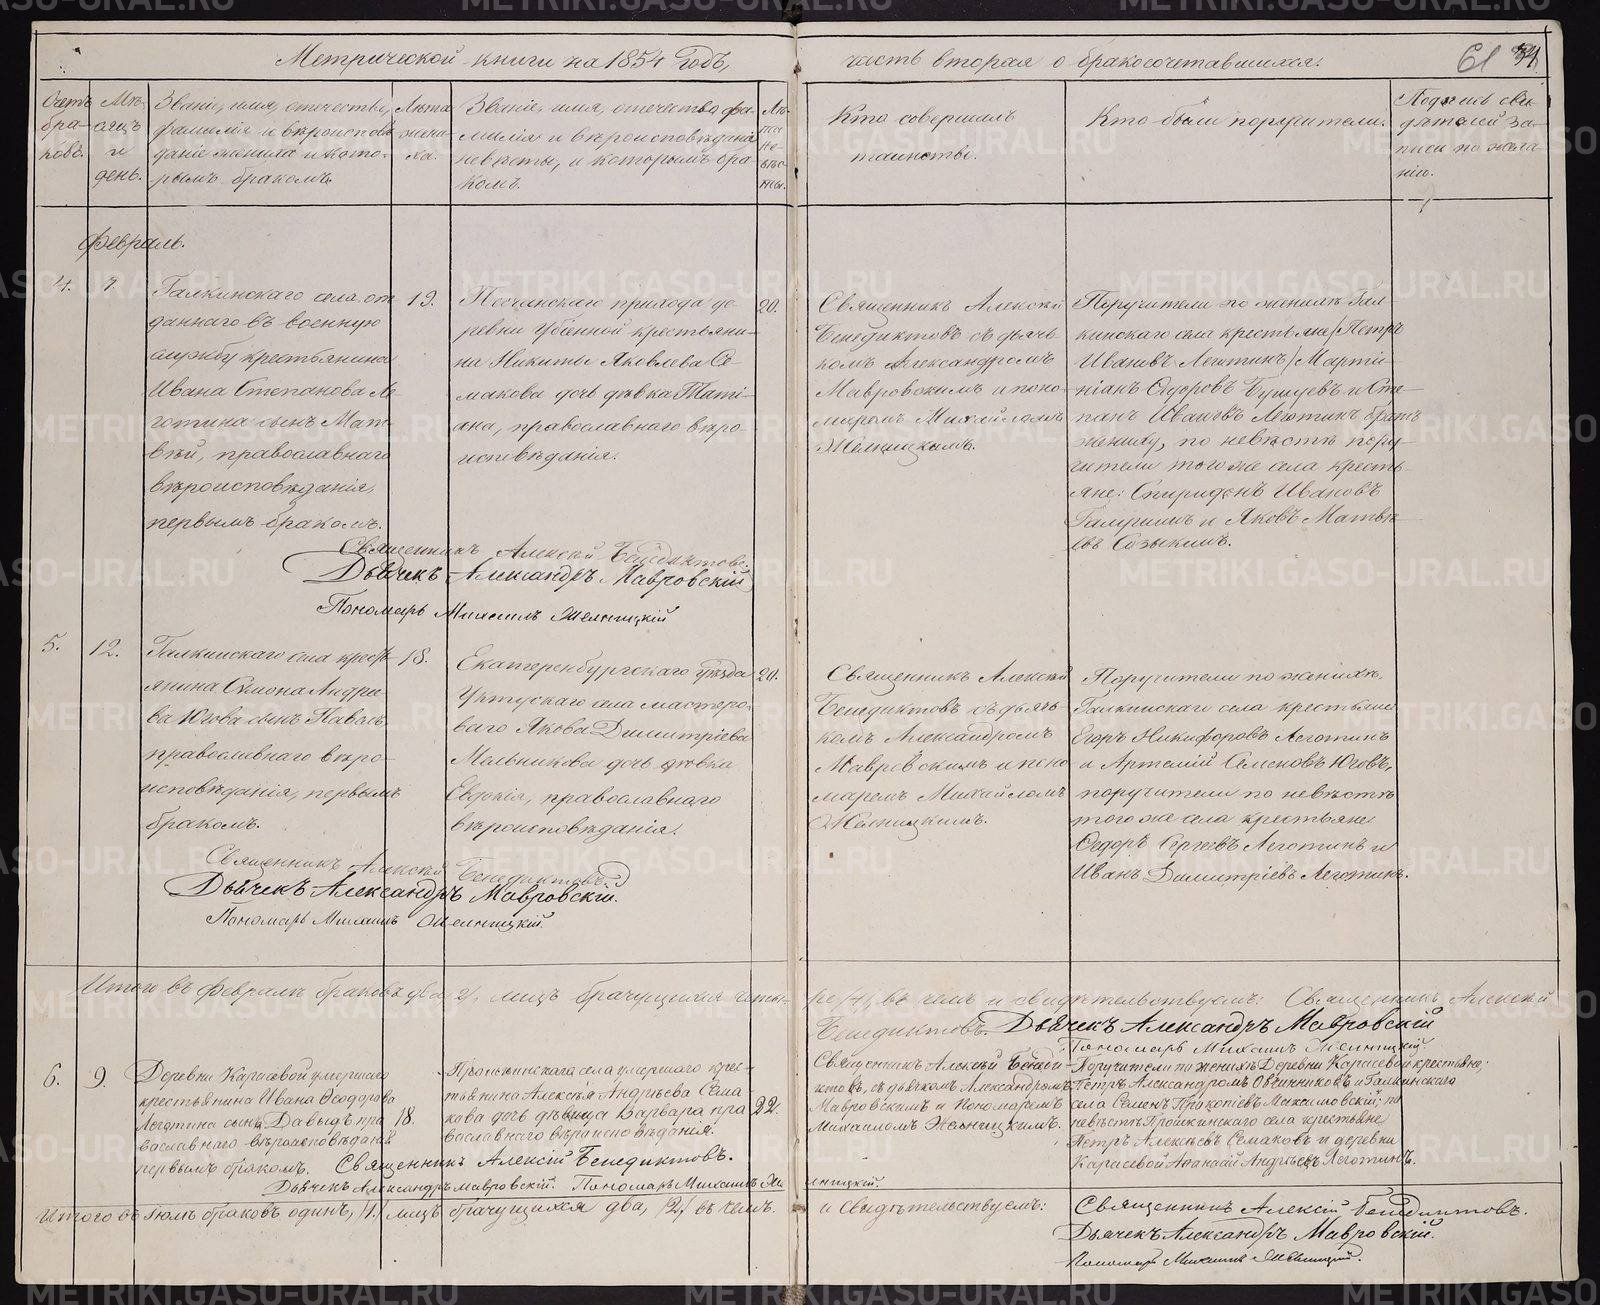 Метрической книги на 1854 годъ,
часть вторая о бракосочетавшихся.
61
Счетъ браковъ.
Мѣсяцъ и день.
Званіе, имя, отечество,
фамилія и вѣроиспове-
даніе жениха и кото-
рымъ бракомъ.
Лѣта
жени-
ха.
Званіе, имя, отечество фа-
милія и вѣроисповѣдание
невѣсты, и которымъ бра-
комъ.
Лѣ-
та
не-
вѣс-
ты.
Кто совершилъ
таинство.
Кто были поручители.
Подпись сви-
дѣтелей за-
писи по жела-
нію.
Февраль.
4.
7.
Галкинскаго села от-
даннаго въ военную
службу крестьянина
Ивана Степанова Ле-
готина сынъ Мат-
вѣй, православнаго
вѣроисповѣданія,
первымъ бракомъ.
19.
Песчанскаго прихода де-
ревни Убіенной крестьяни-
на Никиты Яковлева Се-
макова дочь дѣвка Тати-
ана, православнаго вѣро-
исповѣданія.
20.
Священникъ Алексій
Бенедиктовъ съ дьяч-
комъ Александромъ
Мавровскимъ и поно-
маремъ Михайломъ
Желницкимъ.
Поручители по женихѣ Гал-
кинскаго села крестьяне Петръ
Ивановъ Леготинъ Марти-
ніанъ Ѳедоровъ и Сте-
панъ Ивановъ Леготинъ братъ
жениху, по невѣстѣ пору-
чители того же села кресть-
яне: Спиридонъ Ивановъ
и Яковъ Матвѣ-
евъ Созыкинъ.
Священникъ Алексій Бенедиктовъ.
Дьячекъ Александръ Мавровскій
Пономарь Михаилъ Желницкій
5.
12.
Галкинскаго села кресть-
янина Симона Андрее-
ва Югова сынъ Павелъ
православнаго вѣро-
исповѣданія, первымъ
бракомъ.
18.
Екатеринбургскаго уѣзда
Уктусскаго села мастеро-
ваго Якова Димитріева
Мельникова дочь дѣвка
Евдокія, православнаго
вѣроисповѣданія.
20.
Священникъ Алексій
Бенедиктовъ съ дьяч-
комъ Александромъ
Мавровскимъ и поно-
маремъ Михайломъ
Желницкимъ.
Поручители по женихѣ,
Галкинскаго села крестьяне
Егоръ Никифоровъ Леготинъ
и Артемій Семеновъ Юговъ,
поручители по невѣстѣ
того же села крестьяне
Ѳедоръ Сергеевъ Леготинъ и
Иванъ Димитріевъ Леготинъ.
Священникъ Алексій Бенедиктовъ
Дьячекъ Александръ Мавровскій.
Пономарь Михаилъ Желницкій.
Итого въ Февралѣ браковъ два 2, лицъ брачущихся четы-
ре /4/, въ чемъ и свидѣтельствуемъ: Священникъ Алексій
Бенедиктовъ. Дьячекъ Александръ Мавровскій
Пономарь Михаилъ Желницкій.
6.
9.
Деревни Карасевой умершаго
крестьянина Ивана Ѳеодорова
Леготина сынъ Давыдъ пра-
вославнаго вѣроисповѣданія
первымъ бракомъ.
18.
села умершаго крес-
тьянина Алексѣя Андрѣева Сема-
кова дочь дѣвица Варвара пра-
вославнаго вѣроисповѣданія.
22.
Священникъ Алексѣй Бенеди-
ктовъ, съ дьячкомъ Александромъ
Мавровскимъ и Пономаремъ
Михаиломъ Желницкимъ.
Поручители по женихѣ Деревни Карасевой крестьяне:
Петръ Александровъ Овчинниковъ и Галкинскаго
села Семенъ Прокопіевъ Максимовскій; по
невѣстѣ села крестьяне
Петръ Алексѣевъ Семаковъ и деревни
Карасевой Аѳанасій Андрѣевъ Леготинъ.
Священникъ Алексій Бенедиктовъ.
Дьячекъ Александръ Мавровскій. Пономарь Михаилъ Желницкій.
Итого въ Іюлѣ браковъ одинъ, /1./ лицъ брачущихся два, /2/ въ чемъ
и свидѣтельствуемъ: Священникъ Алексій Бенедиктовъ.
Дьячекъ Александръ Мавровскій.
Пономарь Михаилъ Желницкій.
METRIKI.GASO-URAL.RU